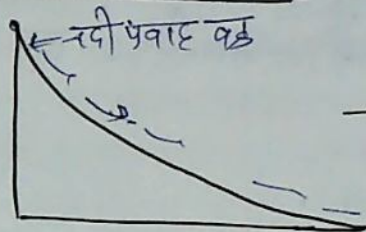 नदी प्रवाह वक्र